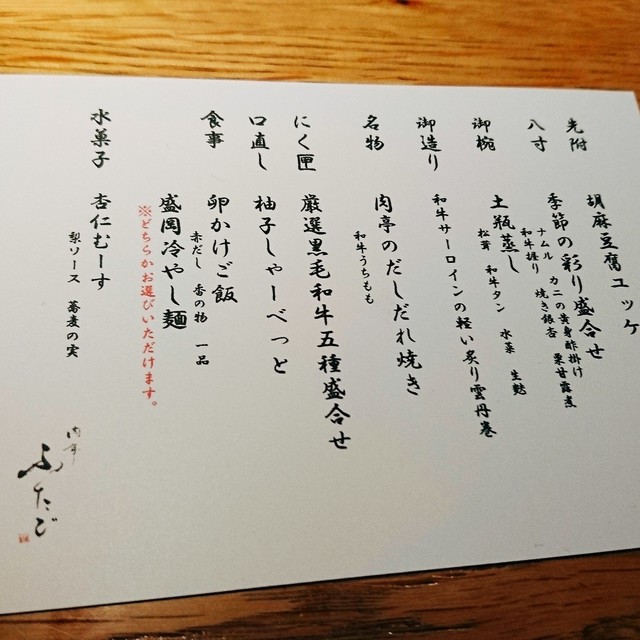 先附 胡麻豆腐ユッケ
八寸 季節の彩り盛合せ
ナムル カニの黄身酢掛け
和牛握り 焼き銀杏 栗甘露煮
御椀 土瓶蒸し
松茸 和牛タン 水菜 生麩
御造り 和牛サーロインの軽い炙り雲丹巻
名物 肉亭のだしだれ焼き
和牛うちもも
にく匣 厳選黒毛和牛五種盛合せ
口直し 柚子しゃーべっと
食事 卵かけご飯
赤だし 香の物 一品
盛岡冷やし麺
※どちらかお選びいただけます。
水菓子 杏仁むーす
梨ソース 蕎麦の実
肉亭
ふたご